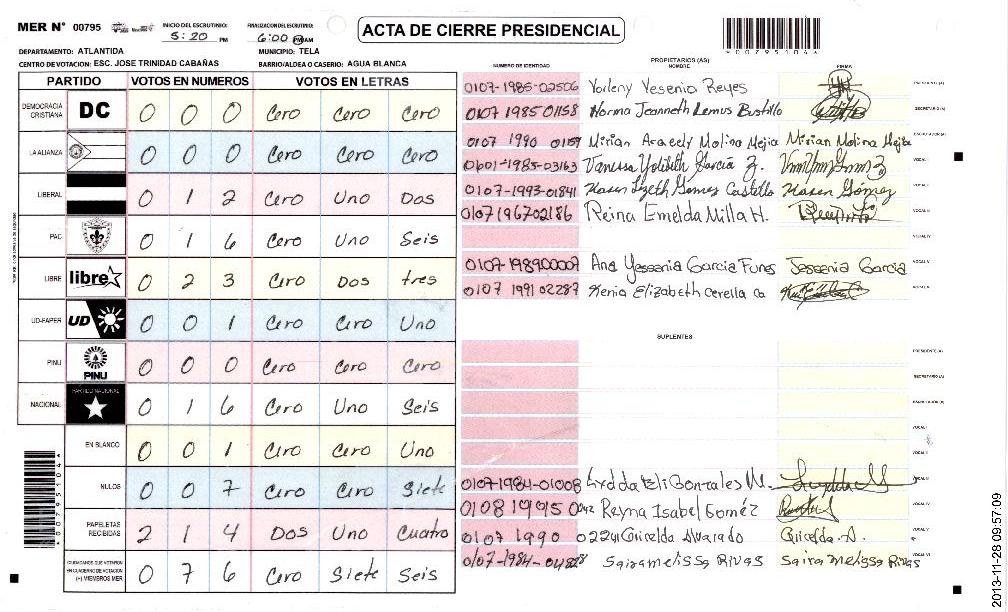 MER N° 00795 INICIO DEL ESCRUTINIO: 5:20 PM FINALIZACION DEL ESCRUTINIO: 6:00 PM AM
ACTA DE CIERRE PRESIDENCIAL
DEPARTAMENTO: ATLANTIDA MUNICIPIO: TELA
CENTRO DE VOTACION: ESC. JOSE TRINIDAD CABAÑAS BARRIO/ALDEA O CASERIO: AGUA BLANCA
PARTIDO VOTOS EN NUMEROS VOTOS EN LETRAS
DEMOCRACIA CRISTIANA DC 0 0 0 Cero Cero Cero
LA ALIANZA 0 0 0 Cero Cero Cero
LIBERAL 0 1 2 Cero Uno Dos
PAC 0 1 6 Cero Uno Seis
LIBRE libre 0 2 3 Cero Dos tres
UD-FAPER UD 0 0 1 Cero Cero Uno
PINU PINU 0 0 0 Cero Cero Cero
NACIONAL PARTIDO NACIONAL 0 1 6 Cero Uno Seis
EN BLANCO 0 0 1 Cero Cero Uno
NULOS 0 0 7 Cero Cero Siete
PAPELETAS RECIBIDAS 2 1 4 Dos Uno Cuatro
CIUDADANOS QUE VOTARON EN CUADERNO DE VOTACION (+) MIEMBROS MER 0 7 6 Cero Siete Seis
PROPIETARIOS (AS)
NUMERO DE IDENTIDAD NOMBRE FIRMA
0107-1985-02506 Yorleny Yesenia Reyes PRESIDENTE (A)
0107 1985 01158 Norma Jeanneth Lemus Bustillo SECRETARIO (A)
0107 1990 01159 Mirian Aracely Molina Mejia Mirian Molina Mejia ESCRUTADOR (A)
0601-1985-03163 Vanessa Yolibeth García Z. VOCAL I
0107-1993-01841 Karen Lizeth Gomez Castillo Karen Gómez VOCAL II
0107196702186 Reina Emelda Milla H. VOCAL III
VOCAL IV
0107-198900007 Ana Yessenia Garcia Funes Jessenia Garcia VOCAL V
0107 1991 02287 Kenia Elizabeth
SUPLENTES
PRESIDENTE (A)
SECRETARIO (A)
ESCRUTADOR (A)
VOCAL I
VOCAL II
0107-1984-01008 Eli Gonzales M. VOCAL III
Reyna Isabel Goméz VOCAL IV
0107 1990 02241 Gricelda Alvarado Gricelda A. VOCAL V
0107-1984- Saira melissa Rivas Saira melissa Rivas VOCAL VI
00795104
2013-11-28 09:57:09